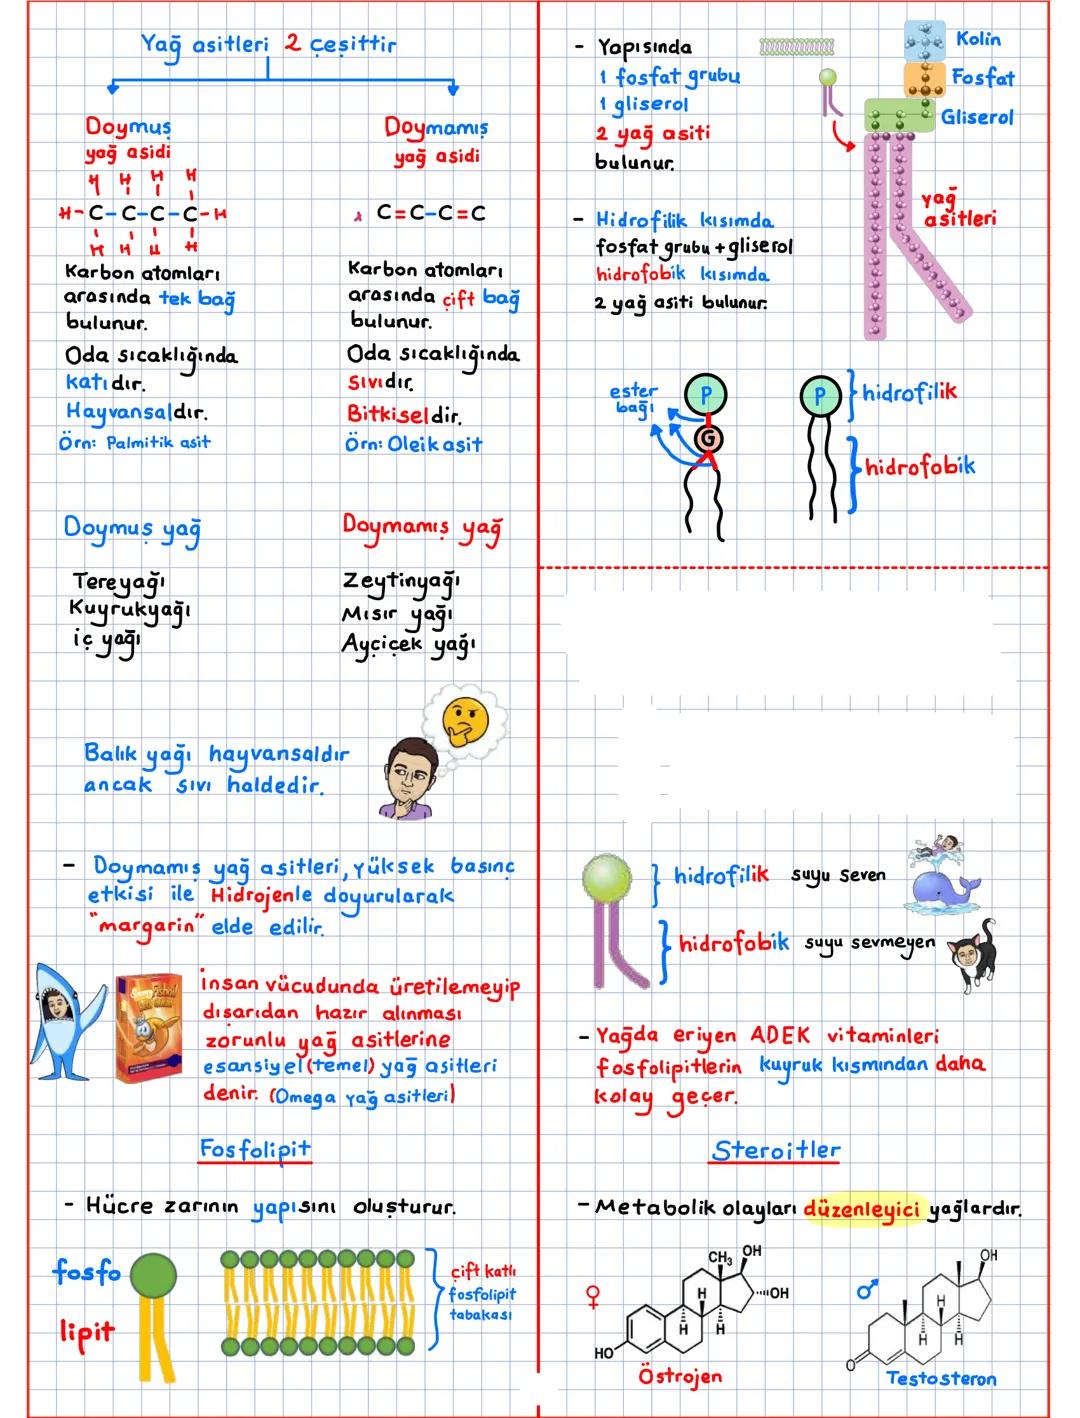 Yağ asitleri 2 çeşittir
Doymuş
yağ asidi
H H H H
H-C-C-C-C-H
H H H H
Karbon atomları
arasında tek bağ
bulunur.
Oda sıcaklığında
katıdır.
Hayvansaldır.
Örn: Palmitik asit
Doymamış
yağ asidi
C=C-C=C
Karbon atomları
arasında çift bağ
bulunur.
Oda sıcaklığında
sıvıdır.
Bitkiseldir.
Örn: Oleik asit
Doymuş yağ
Tereyağı
Kuyrukyağı
iç yağı
Doymamış yağ
Zeytinyağı
Mısır yağı
Ayçiçek yağı
Balık yağı hayvansaldır
ancak sıvı haldedir.
- Doymamış yağ asitleri, yüksek basınç
etkisi ile Hidrojenle doyurularak
"margarin" elde edilir.
insan vücudunda üretilemeyip
dışarıdan hazır alınması
zorunlu yağ asitlerine
esansiyel (temel) yağ asitleri
denir. (Omega yağ asitleri)
Fosfolipit
- Hücre zarının yapısını oluşturur.
fosfo
lipit
çift katlı
fosfolipit
tabakası
- Yapısında
1 fosfat grubu
1 gliserol
2 yağ asiti
bulunur.
Kolin
Fosfat
Gliserol
yağ
asitleri
- Hidrofilik kısımda
fosfat grubu + gliserol
hidrofobik kısımda
2 yağ asiti bulunur.
ester
bağı
P
G
P
hidrofilik
hidrofobik
hidrofilik suyu seven
hidrofobik suyu sevmeyen
- Yağda eriyen ADEK vitaminleri
fosfolipitlerin kuyruk kısmından daha
kolay geçer.
Steroitler
- Metabolik olayları düzenleyici yağlardır.
♀
CH₃ OH
OH
H
H H
HO
Östrojen
♂
OH
H
H H
O
Testosteron